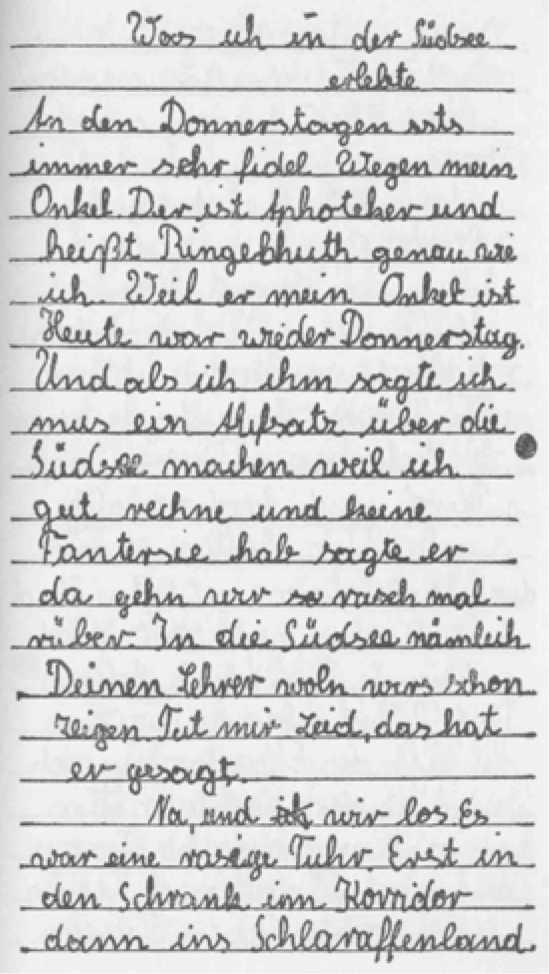 Was ich in der Südsee
erlebte
An den Donnerstagen ists
immer sehr fidel. Wegen mein
Onkel. Der ist Aphoteker und
heißt Ringelhuth genau wie
ich. Weil er mein Onkel ist
Heute war wieder Donnerstag.
Und als ich ihm sagte ich
mus ein Aufsatz über die
Südsee machen weil ich
gut rechne und keine
Fantersie hab sagte er
da gehn wir so rasch mal
rüber. In die Südsee nämlich
Deinen Lehrer woln wirs schon
zeigen. Tut mir Leid, das hat
er gesagt.
Na, und wir los. Es
war eine rasige Tuhr. Erst in
den Schrank im Korridor
dann ins Schlaraffenland.